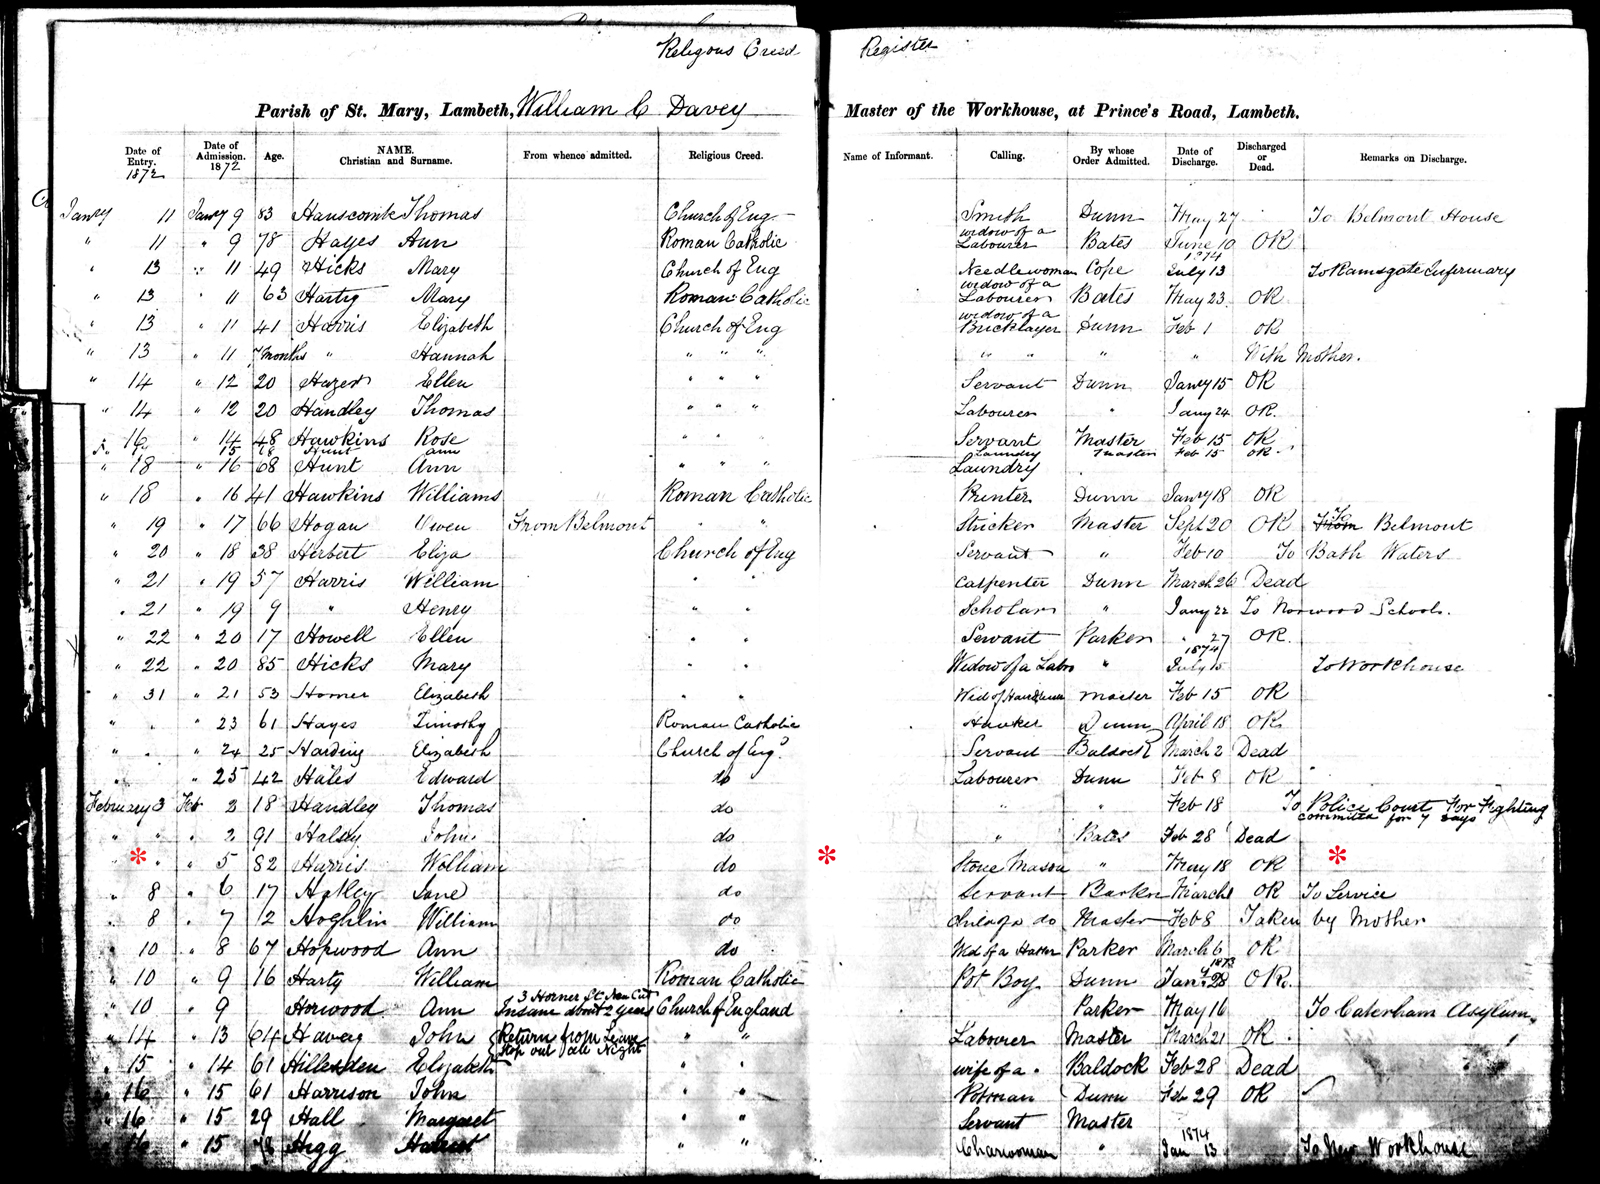 Religous Creed Register
Parish of St. Mary, Lambeth, William C Davey Master of the Workhouse, at Prince's Road, Lambeth.
Date of Entry. 1872 Date of Admission. 1872 Age. NAME. Christian and Surname. From whence admitted. Religious Creed. Name of Informant. Calling. By whose Order Admitted. Date of Discharge. Discharged or Dead. Remarks on Discharge.
Janry 11 Janry 9 83 Hanscombe Thomas Church of Eng Smith Dunn May 27 To Belmont House
" 11 " 9 78 Hayes Ann Roman Catholic widow of a Labourer Bates June 10 OK
" 13 " 11 49 Hicks Mary Church of Eng Needlewoman Cope 1874 July 13 To Ramsgate Infirmary
" 13 " 11 63 Harty Mary Roman Catholic widow of a Labourer Bates May 23 OK
" 13 " 11 41 Harris Elizabeth Church of Eng widow of a Bricklayer Dunn Feb 1 OK
" 13 " 11 7 months " Hannah " " " " " " " With Mother.
" 14 " 12 20 Hazer Ellen " " " Servant Dunn Janry 15 OK
" 14 " 12 20 Handley Thomas " " " Labourer " Jany 24 OK.
" 16 " 14 48 Hawkins Rose " " " Servant Master Feb 15 OK
15 Hunt Ann Laundry Master Feb 15 OK
" 18 " 16 68 Hunt Ann " " " Laundry
" 18 " 16 41 Hawkins Williams Roman Catholic Printer Dunn Janry 18 OK
" 19 " 17 66 Hogan Owen From Belmont " " Stricker Master Sept 20 OK From To Belmont
" 20 " 18 38 Herbert Eliza Church of Eng Servant " Feb 10 To Bath Waters
" 21 " 19 57 Harris William " " Carpenter Dunn March 26 Dead
" 21 " 19 9 " Henry " " Scholar " Jany 22 To Norwood Schools.
" 22 " 20 17 Howell Ellen " " Servant Parker " 27 OK.
" 22 " 20 85 Hicks Mary " " Widow of a Labr " 1874 July 15 To Workhouse
" 31 " 21 53 Horner Elizabeth " " Wid of Master Feb 15 OK
" " " 23 61 Hayes Timothy Roman Catholic Hawker Dunn April 18 OK
" " " 24 25 Harding Elizabeth Church of Eng? Servant Baldock March 2 Dead
" " 25 42 Hales Edward do Labourer Dunn Feb 8 OK
February 3 Feb 2 18 Handley Thomas do " " Feb 18 To Police Court For Fighting
committed for 7 days
" " " 2 91 Halsey John do " Bates Feb 28 Dead
* " " 5 82 Harris William do * Stone Mason " May 18 OK *
" 8 " 6 17 Hatley Jane do Servant Barker March 1 OK To Service
" 8 " 7 2 Hoghlin William do child of a do Master Feb 8 Taken by Mother
" 10 " 8 67 Hopwood Ann do Wd of a Hatter Parker March 6 OK
" 10 " 9 16 Harty William Roman Catholic Pot Boy Dunn 1873 Jany 28 OK.
" 10 " 9 Horwood Ann 3 Horner St New Cut Insane about 2 years Church of England Parker May 16 To Caterham Asylum
" 14 " 13 64 Havey John Return from Leave Stop out all Night " " Labourer Master March 21 OK
" 15 " 14 61 Hillesden Elizabeth " " wife of a Baldock Feb 28 Dead
" 16 " 15 61 Harrison John " " Potman Dunn Feb 29 OK
" 16 " 15 29 Hall Margaret " " Servant Master
" 16 " 15 78 Hegg Harriet " " Charwoman " 1874 Jan 13 To New Workhouse